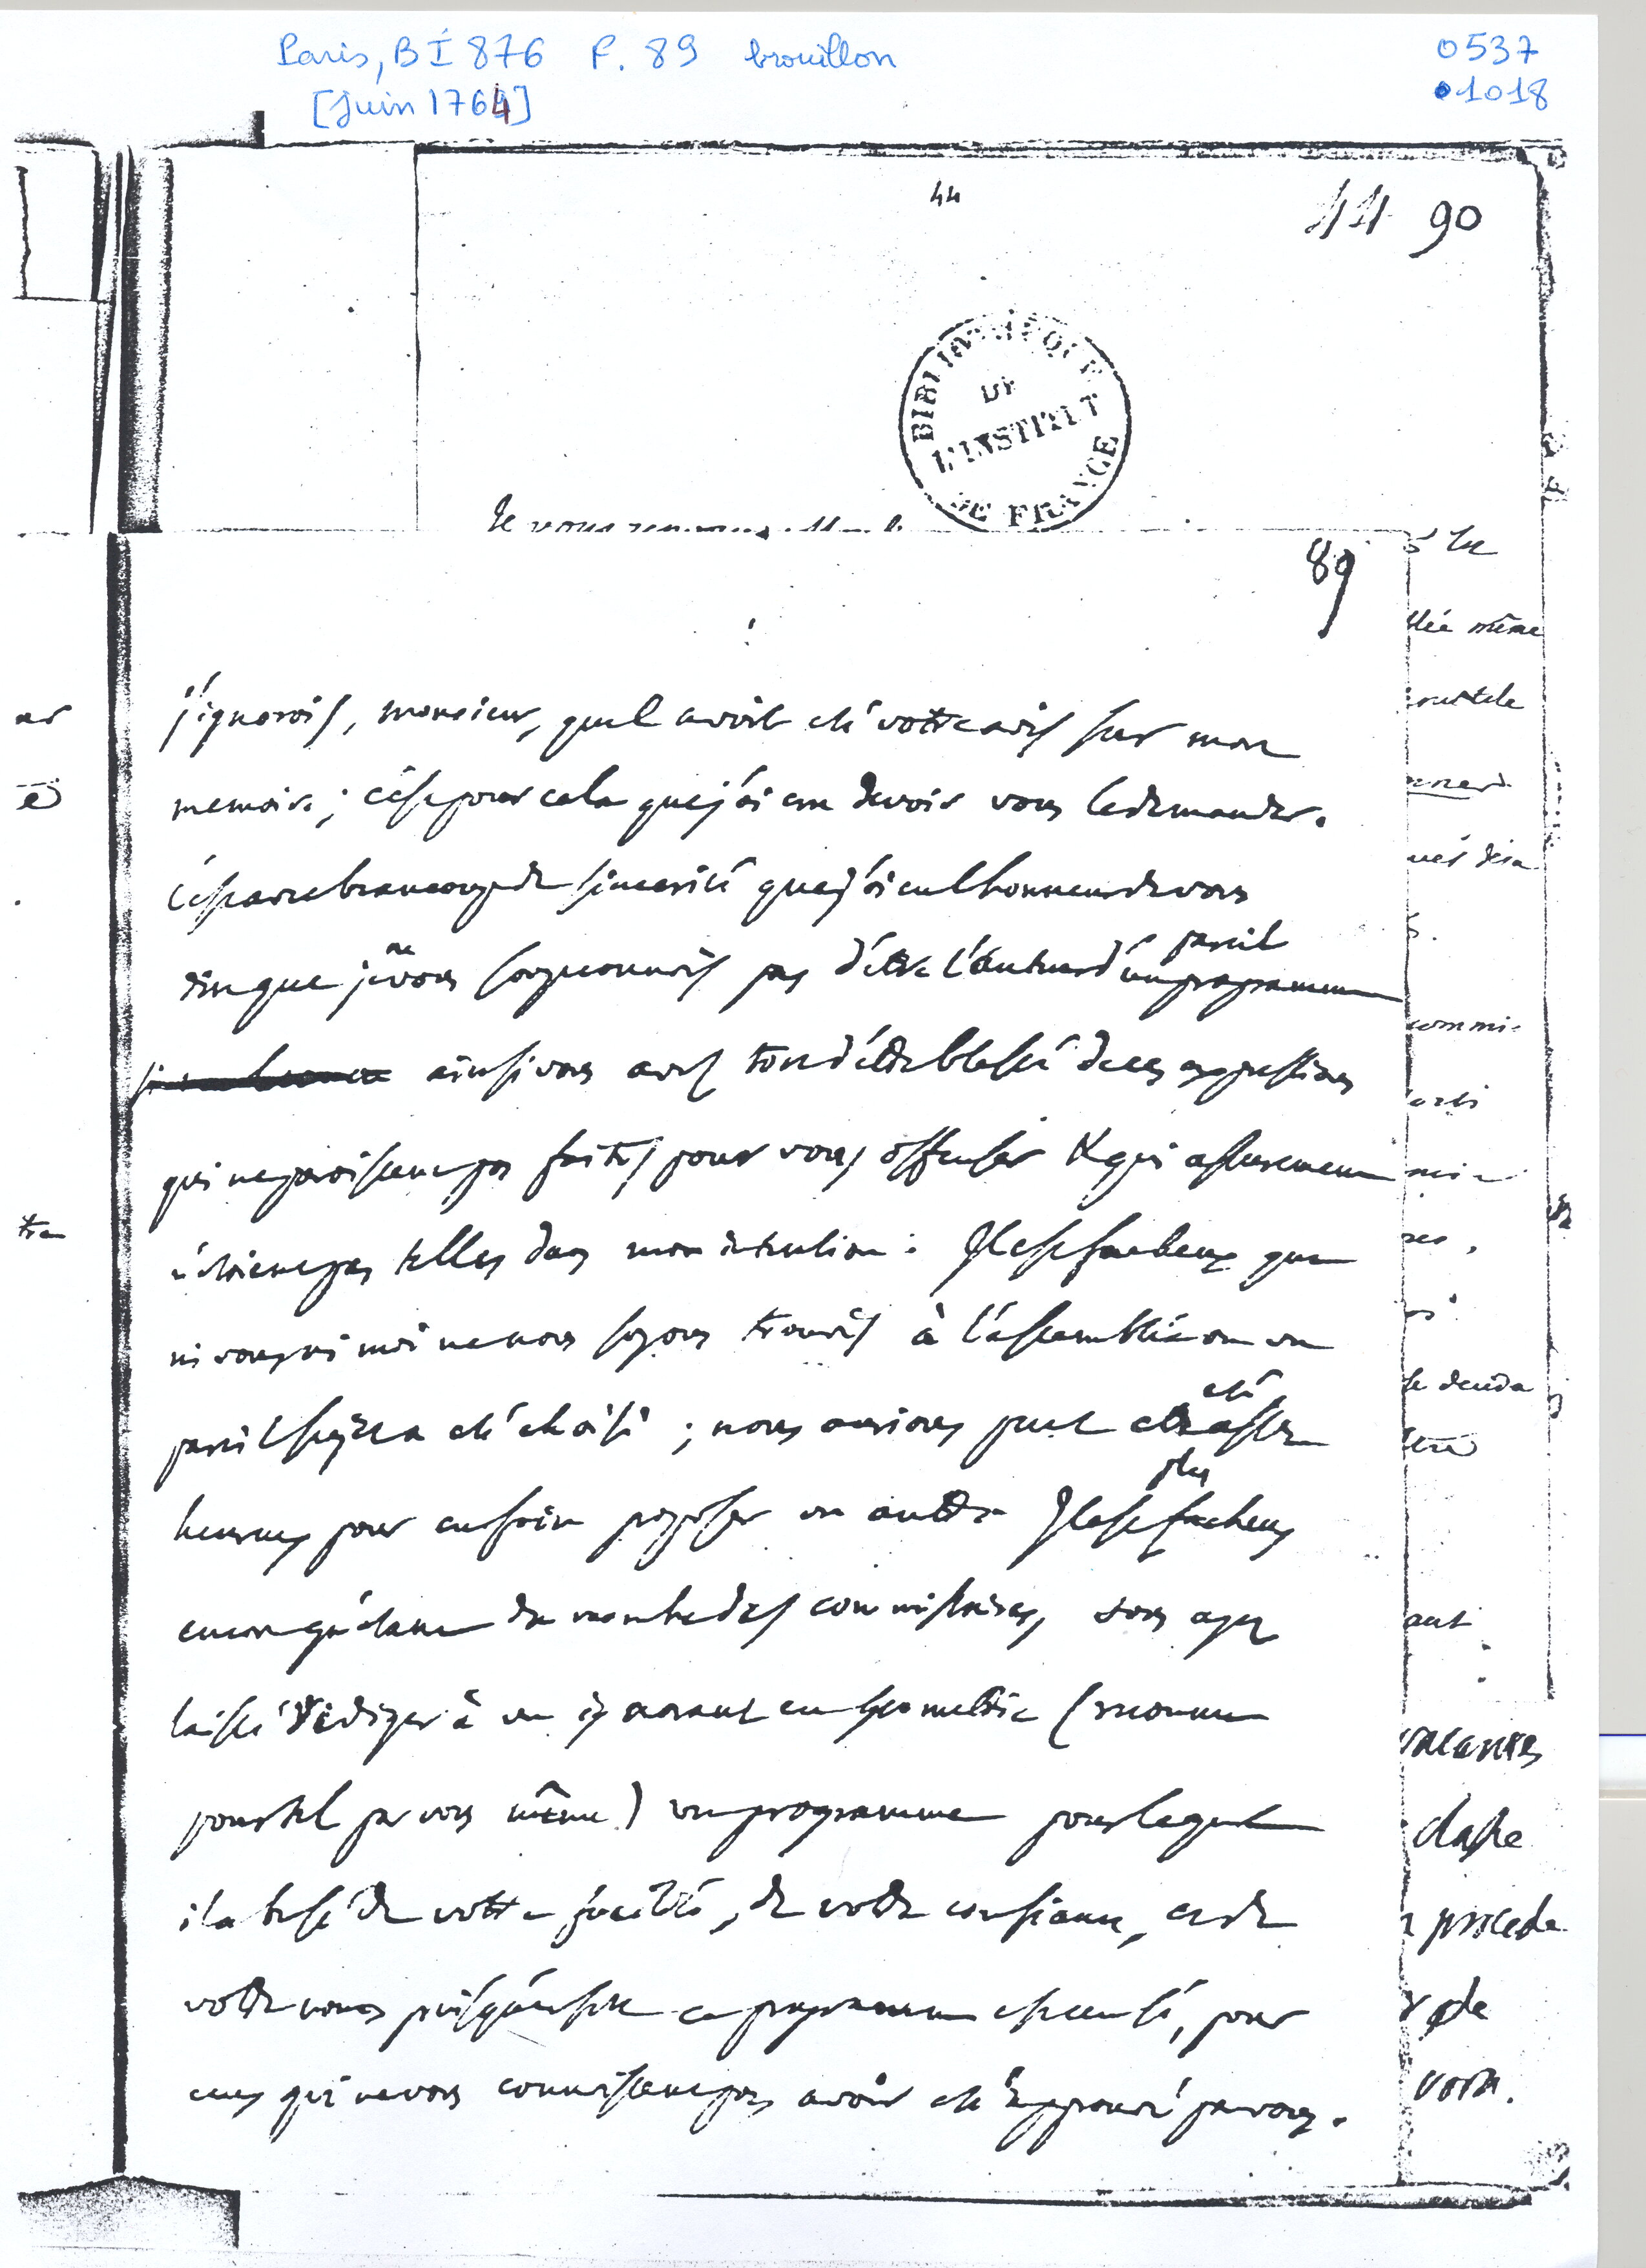 Paris, BI 876 F. 89 brouillon
0537
[Juin 1764]
1018
44
44 90
BIBLIOTHEQUE
DE
L'INSTITUT
DE FRANCE
Je vous
89
j'ignorois, monsieur, quel avoit eté votre avis sur mon
memoire; c'est pour cela que j'ai cru devoir vous le demander.
C'est avec beaucoup de sincerité que j'ai eu l'honneur de vous
dire que je ne vous soupçonnois pas d'être l'auteur d'un pareil programme
ainsi vous avez tort d'être blessé de ces expressions
qui ne paroissent pas faites pour vous offenser & qui assurement
n'étoient pas telles dans mon intention. Il est facheux que
ni vous ni moi ne nous soyons trouvés à l'assemblée ou un
pareil sujet a eté choisi; nous aurions peut être eté assez
heureux pour en faire proposer un autre. Il est plus facheux
encore qu'étant du nombre des commissaires, vous ayez
laissé rediger à un ignorant en geometrie (reconnu
pour tel par vous même) un programme pour lequel
il a abusé de votre facilité, de votre confiance, et de
votre nom, puisqu'ensuite ce programme est censé, pour
ceux qui ne vous connoissent pas, avoir eté approuvé par vous.
à la
blée même
commi-
aut
vacances
classe
procede
de
vous.